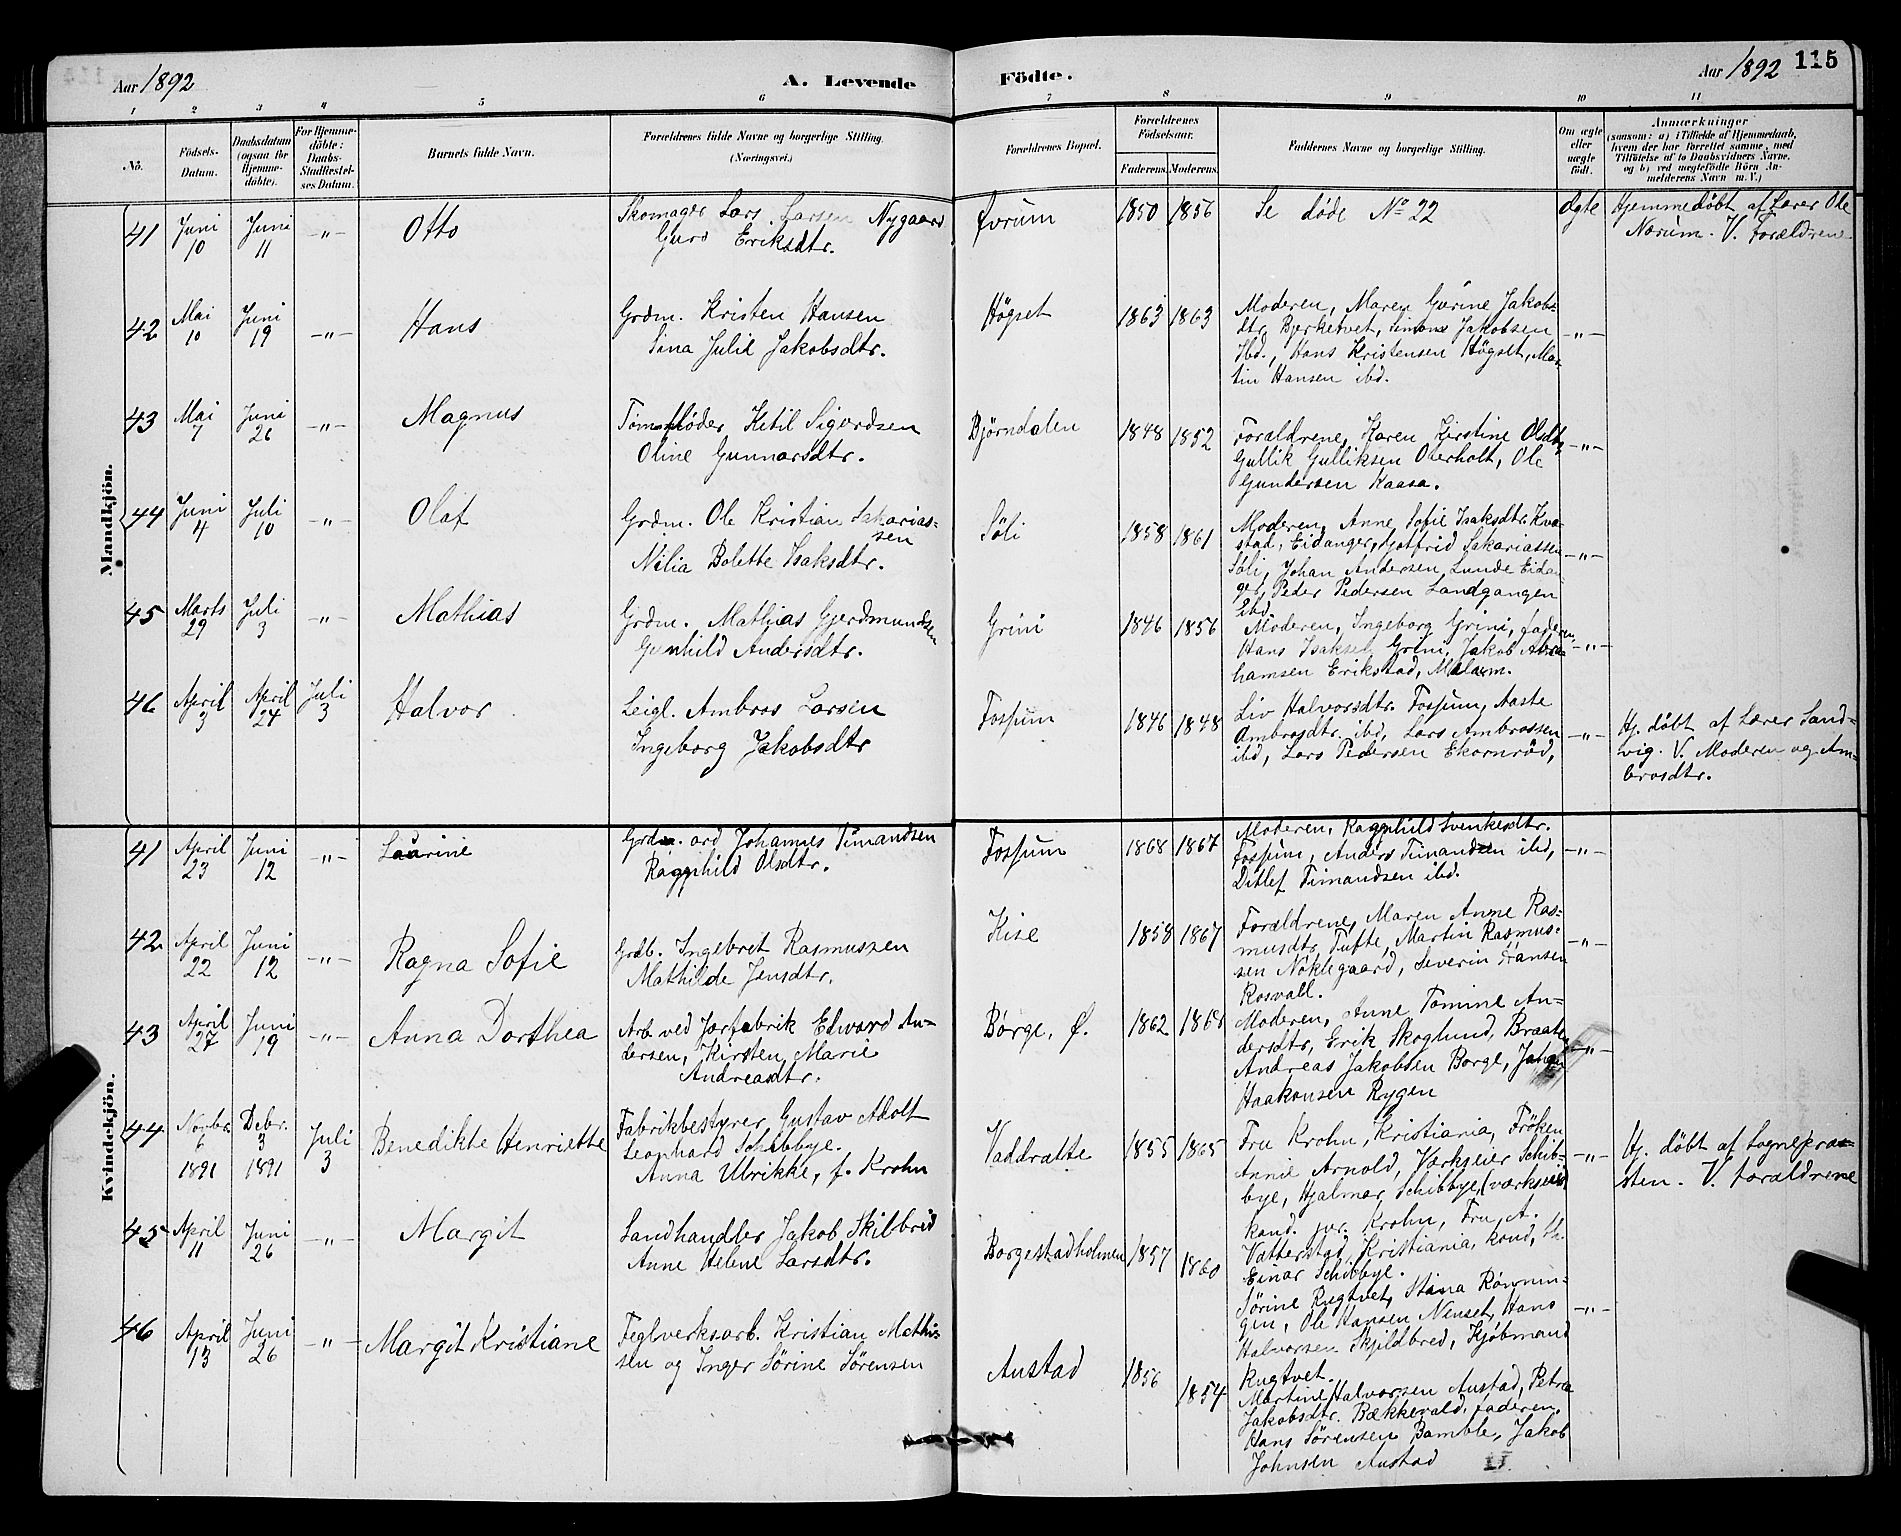 Aar 1892
A. Levende
Födte.
Aar 1892
115
1 2 3 4 5 6 7 8 9 10 11
No.
Födsels-Datum.
Daabsdatum (ogsaa for Hjemme-döbte).
For Hjemme-döbte: Daabs-Stadfæstel-ses Datum.
Barnets fulde Navn.
Forældrenes fulde Navne og borgerlige Stilling. (Næringsvei.)
Forældrenes Bopæl.
Forældrenes Födselsaar.
Faderens. Moderens.
Faddernes Navne og borgerlige Stilling.
Om ægte eller uægte födt.
Anmærkninger
(saasom: a) i Tilfælde af Hjemmedaab, hvem der har forrettet samme, med Tilföielse af to Daabsvidners Navne, og b) ved uægtefödte Börn An-melderens Navn m. V.)
Mandkjön.
41 Juni 10 Juni 11 -"- Otto
Skomager Lars Larsen Nygaard
Guro Eriksdtr.
Øvrum 1850 1856
Se døde No 22
Ægte
Hjemmedöbt af Lærer Ole
Nærum. V. Forældrene
42 Mai 10 Juni 19 -"- Hans
Grdm. Kristen Hansen
Sina Julie Jakobsdtr.
Högset 1863 1863
Moderen, Maren Gurine Jakobs-
dtr. Bjerketvet, Simons Jakobsen
Ibd., Hans Kristensen Högset, Mar-
tin Hansen ibd.
-"-
43 Mai 7 Juni 26 -"- Magnus
Tømfløder Ketil Sigurdsen
Oline Gunnarsdtr.
Björndalen 1848 1852
Forældrene, Karen Kirstine Olsdtr,
Gullik Gulliksen Oterholt, Ole
Gundersen Kaasa.
-"-
44 Juni 4 Juli 10 -"- Olaf
Grdm. Ole Kristian Sakarias-
sen
Nilia Bolette Isaksdtr.
Søli 1858 1861
Moderen, Anne Sofie Isaksdtr. Kva-
stad, Eidanger, Gotfrid Sakariassen
Søli, Johan Andersen Lunde Eidan-
ger, Peder Pedersen Landgangen
Ibd.
-"-
45 Marts 29 Juli 3 -"- Mathias
Grdm. Mathias Gjermundsen
Gunhild Andersdtr.
Grini 1846 1856
Moderen, Ingeborg Grini, faderen,
Hans Isaksen Grini, Jakob Abra-
hamsen Erikstad, Melum.
-"-
46 April 3 April 24 Juli 3 Halvor
Leigl. Ambros Larsen
Ingeborg Jakobsdtr
Fossum 1846 1848
Liv Halvorsdtr. Fossum, Aaste
Ambrosdtr. ibd, Lars Ambrossen
ibd, Lars Pedersen Ekornrød,
-"-
Hj. döbt af Lærer Sand-
vig. V. Moderen og Am-
brosdtr.
Kvindekjön.
41 April 23 Juni 12 -"- Laurine
Grdm. ord Johannes Timandsen
Ragnhild Olsdtr.
Fossum 1868 1867
Moderen, Ragnhild Svenkesdtr.
Fossum, Anders Timandsen ibd,
Ditlef Timandsen ibd.
-"-
42 April 22 Juni 12 -"- Ragna Sofie
Grdb. Ingebret Rasmussen
Mathilde Jensdtr.
Kise 1858 1867
Forældrene, Maren Anne Ras-
musdtr, Tufte, Martin Rasmus-
sen Nöklegaard, Severin Hansen
Rosvall.
-"-
43 April 27 Juni 19 -"- Anna Dorthea
Arb. ved Jærfabrik Edvard An-
dersen, Kirsten Marie
Andreasdtr.
Børge, Ø. 1862
Moderen, Anne Tomine An-
dersdtr, Erik Skoglund, Braaten
Andreas Jakobsen Borge, Johan
Haakonsen Rygen
-"-
44 Novbr. 6 1891 Debr. 3 1891 Juli 3 Benedikte Henriette
Fabrikbestyrer Gustav Adolf
Leonhard Schibbye.
Anna Ulrikke, f. Krohn
Vaddrætte 1855 1865
Fru Krohn, Kristiania, Frøken
Annie Arnold, Værkseier Schib-
bye, Hjalmar Schibbye,
kand. jur. Krohn, Fru A.
Vatterstad, Kristiania, kand,
Einar Schibbye.
-"-
Hj. döbt af Sognepræ-
sten. V. Forældrene
45 April 11 Juni 26 -"- Margit
Landhandler Jakob Skilbred
Anne Helene Larsdtr.
Borgestadholmen 1857 1860
Sørine Rugtvet, Stina Rönnin-
gen, Ole Hansen Nenset, Hans
Halvorsen Skjildbred, Kjöbmand
Rugtvet.
-"-
46 April 13 Juni 26 -"- Margit Kristiane
Teglverksarb. Kristian Mathi-
sen og Inger Sörine Sörensen
Austad 1856 1854
Martine Halvorsen Austad, Petra
Jakobsdtr. Bækkevold. faderen.
Hans Sörensen Bamble, Jakob
Johnsen Austad